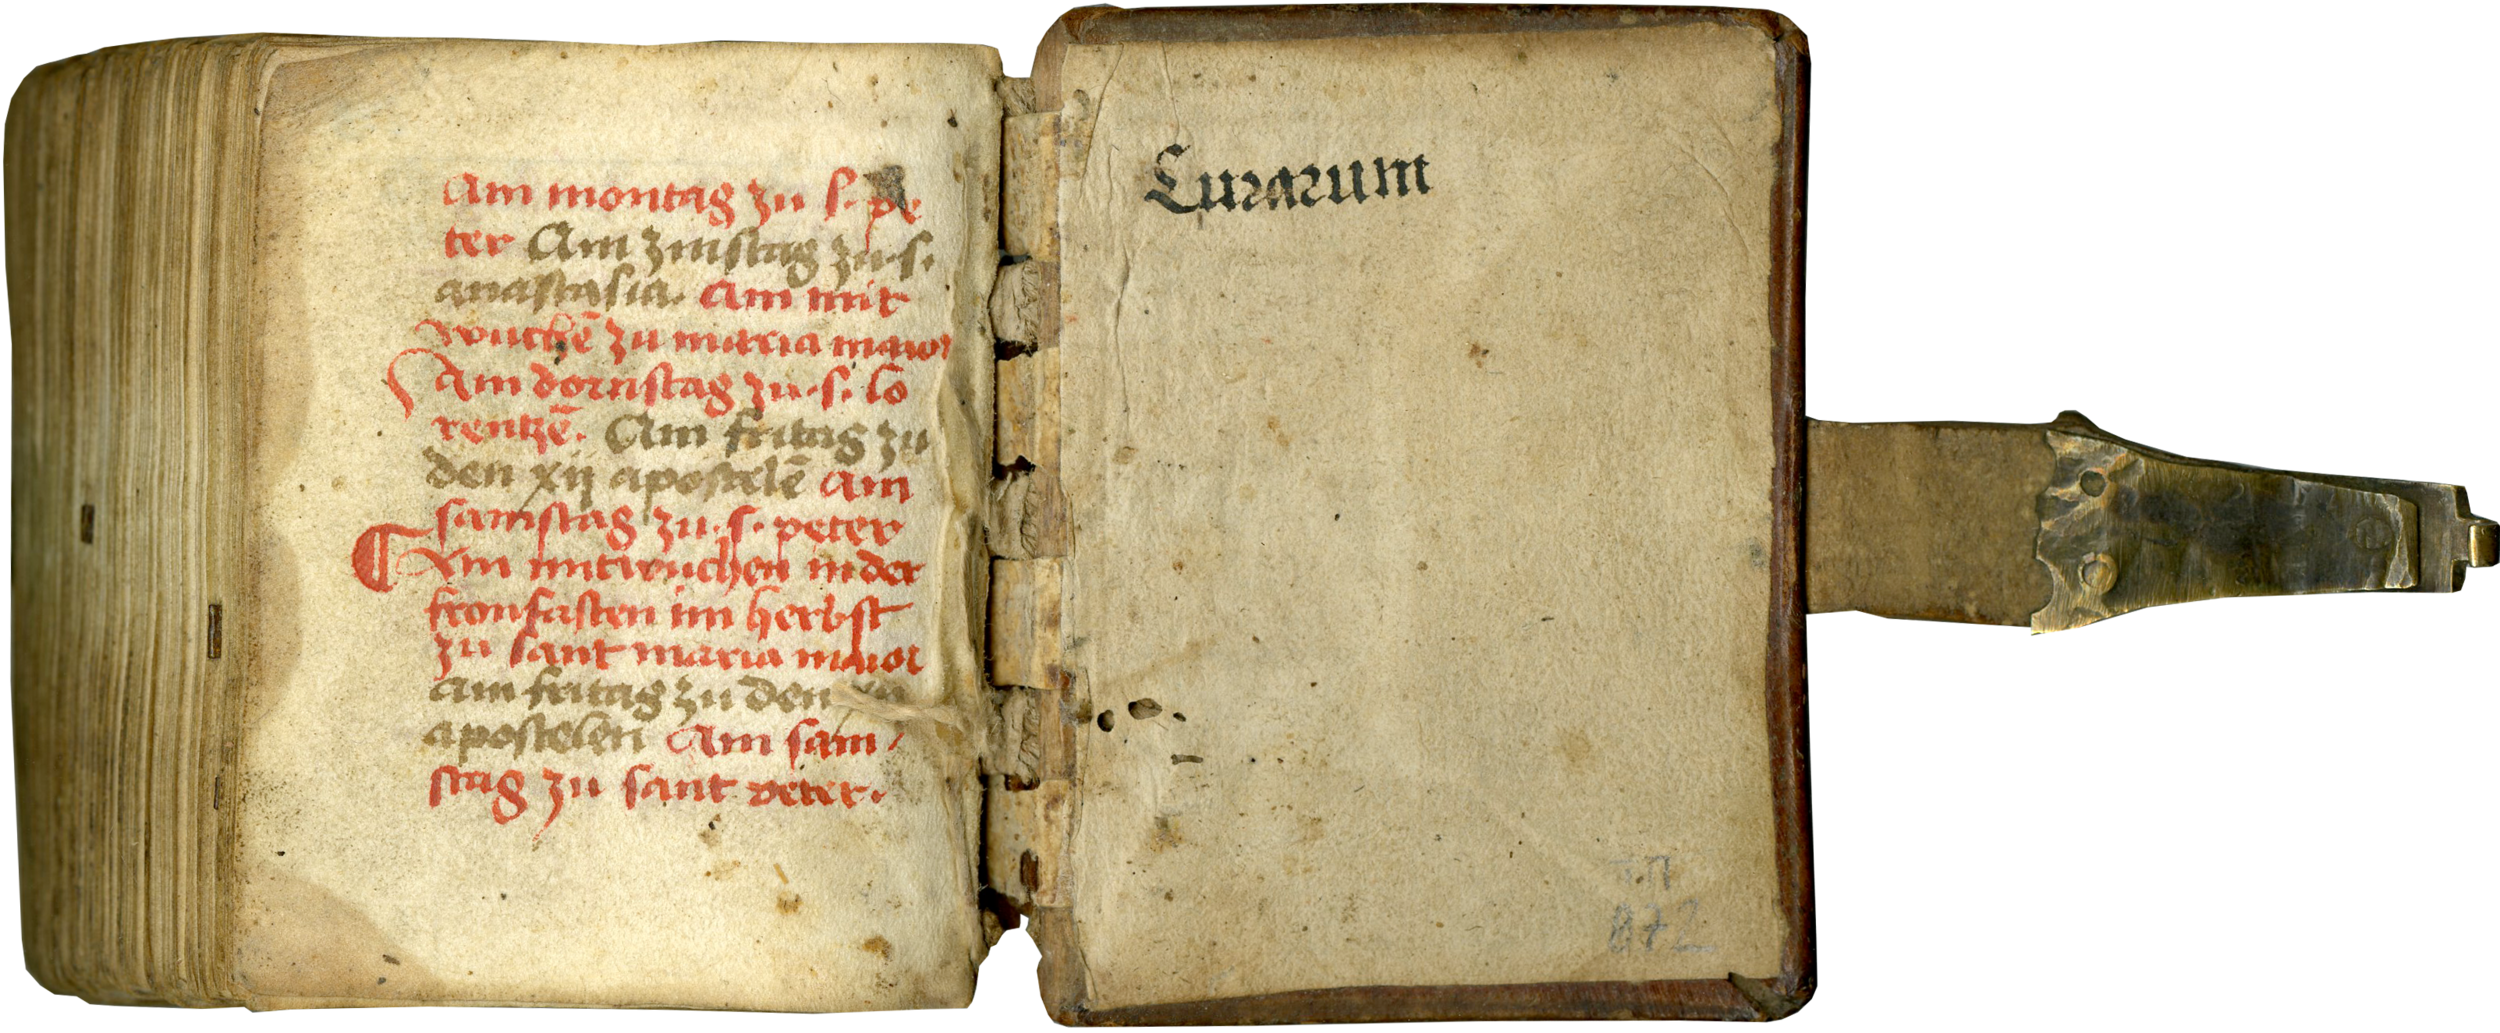 Am montag zu s. pe
ter Am zinstag zu .s.
anastasia. Am mit
wuchē zu maria maior
Am dornstag zu .s. lo
rentzē. Am fritag zu
den xij apostelē Am
samstag zu .s. peter
Am mitwuchen in der
fronfasten im herbst
zu sant maria maior
Am fritag zu den xij
apostelen Am sam
stag zu sant peter.
872